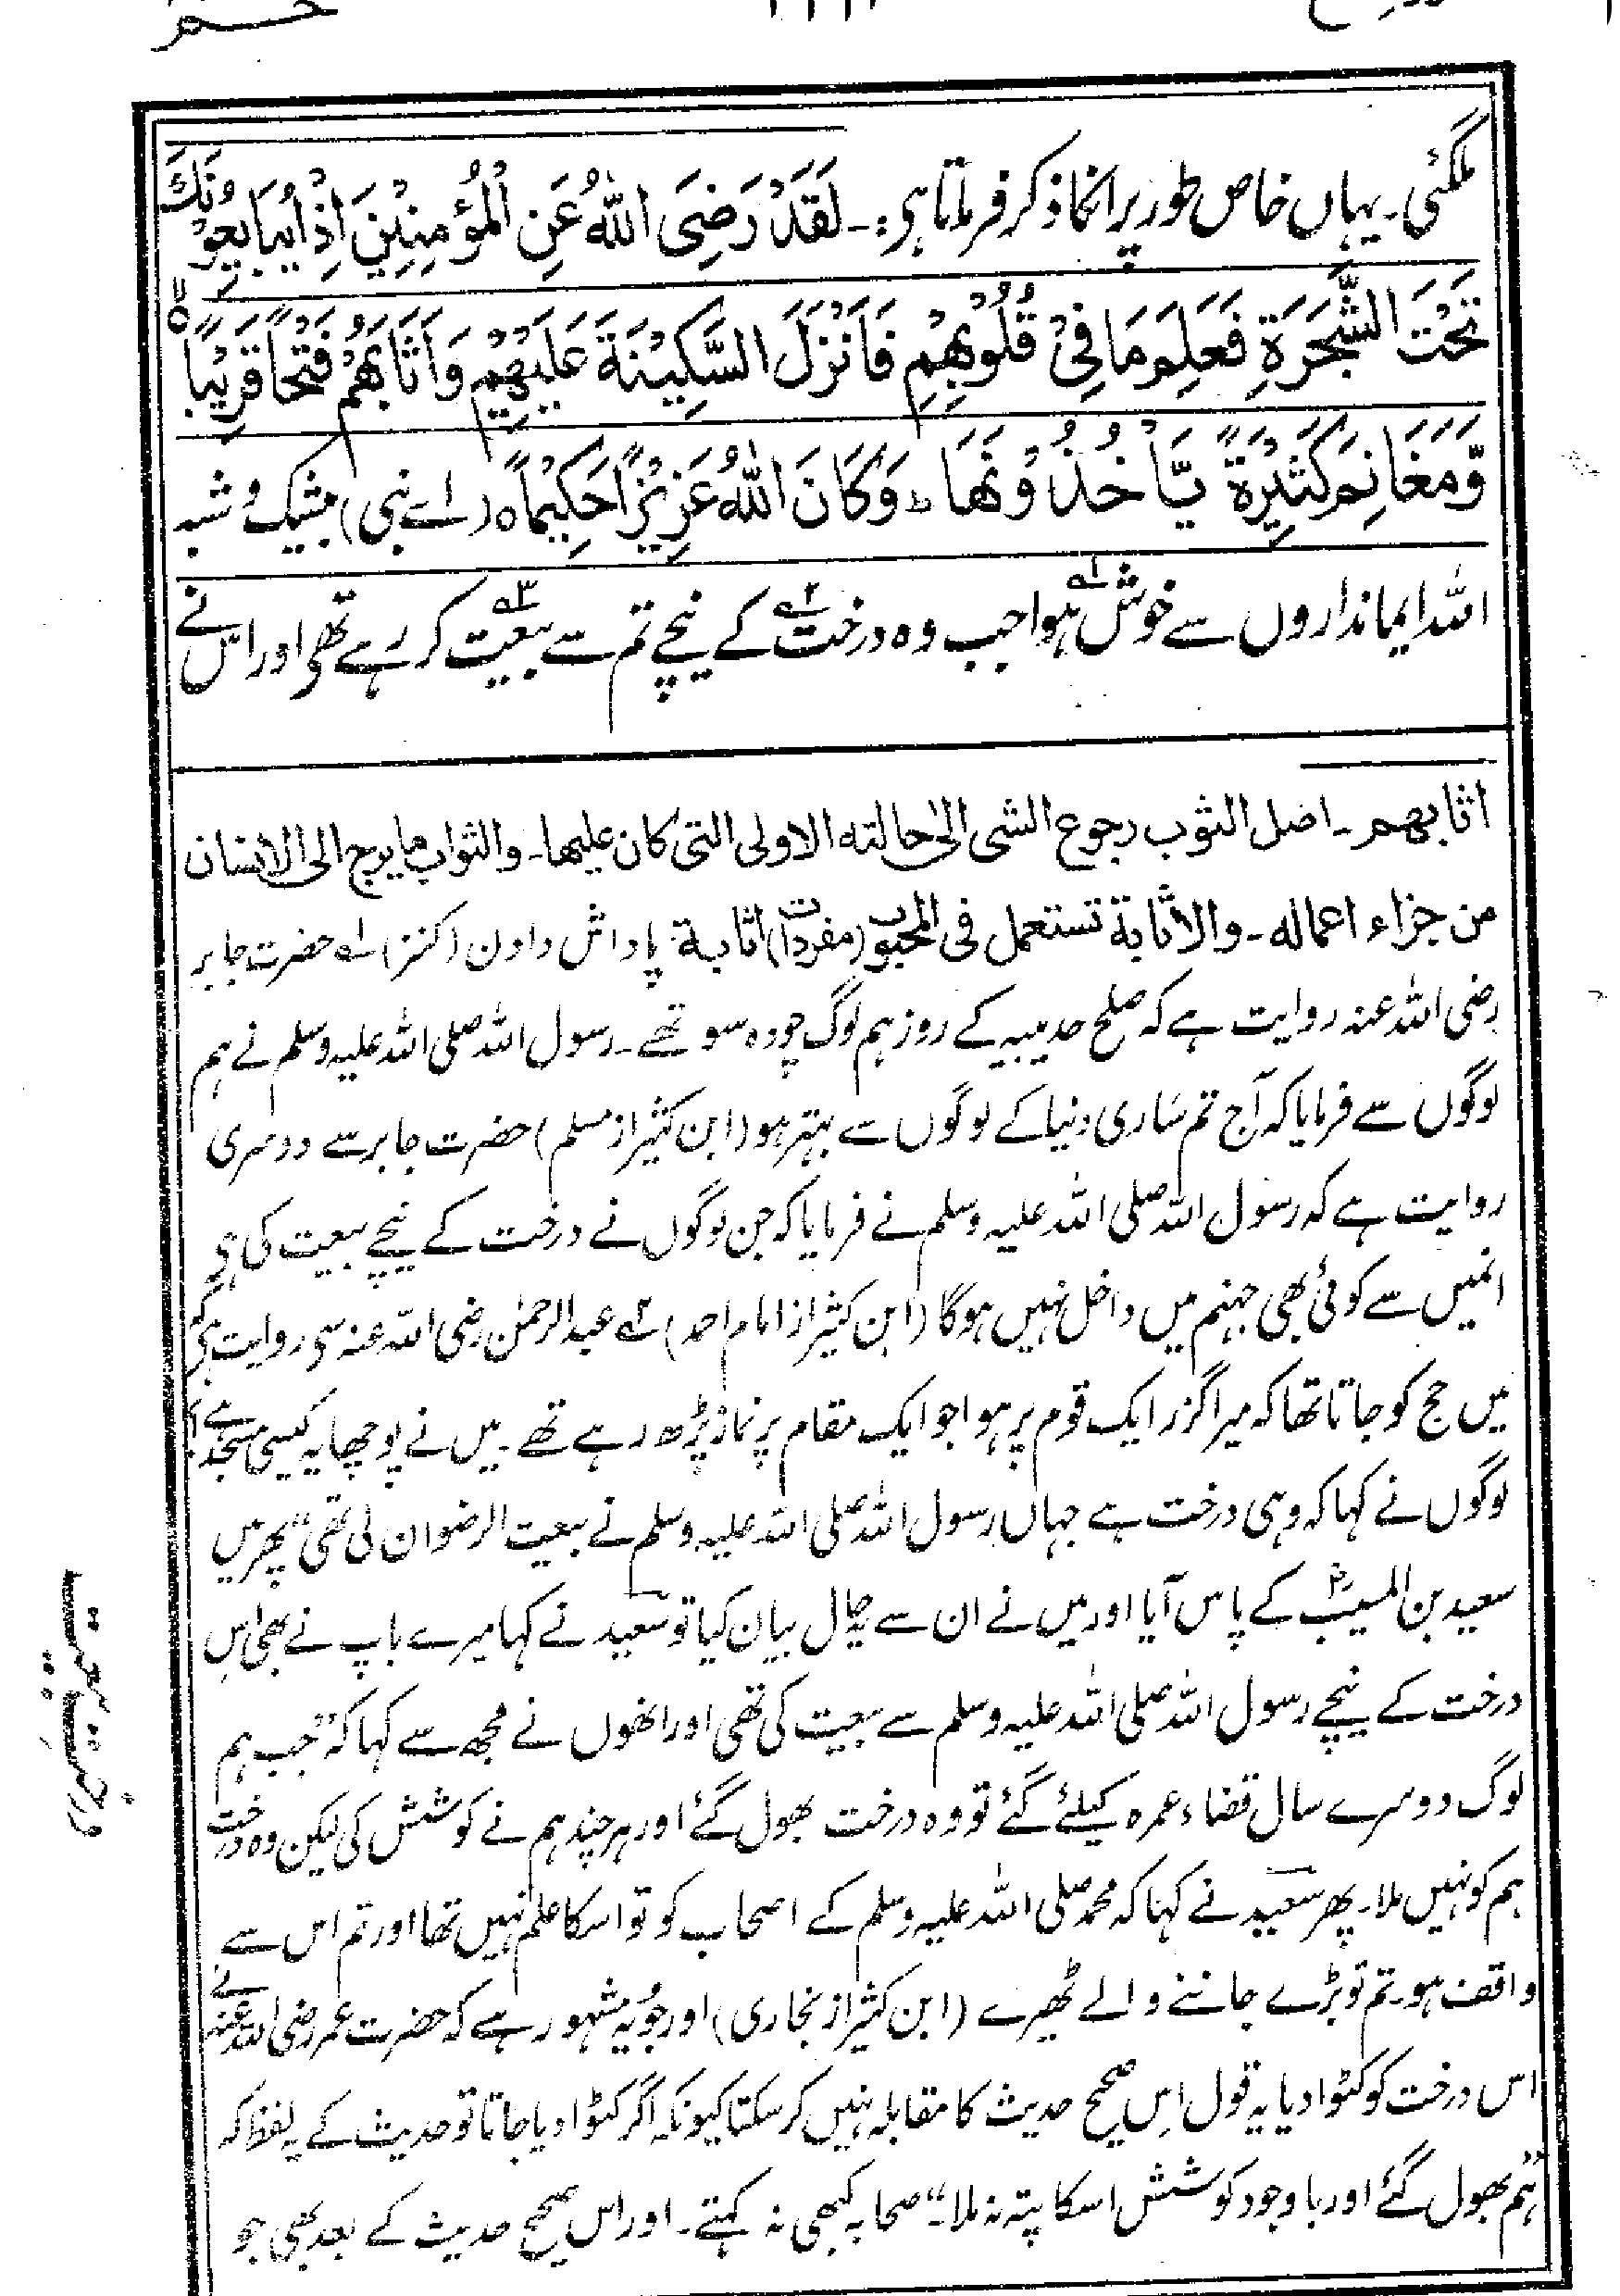 حٰم
ملگئی۔ یہاں خاص طور پر انکا ذکر فرماتا ہی:۔ لَقَدْ رَضِیَ اللّٰهُ عَنِ الْمُؤْمِنِیْنَ اِذْ یُبَایِعُوْنَكَ
تَحْتَ الشَّجَرَةِ فَعَلِمَ مَا فِیْ قُلُوْبِهِمْ فَاَنْزَلَ السَّكِیْنَةَ عَلَیْهِمْ وَاَثَابَهُمْ فَتْحًا قَرِیْبًا
وَّمَغَانِمَ كَثِیْرَةً یَّاْخُذُوْنَهَا ؕ وَكَانَ اللّٰهُ عَزِیْزًا حَكِیْمًا ہ (اے نبی) بیشک و شبہ
اللہ ایمانداروں سے خوش ۱ے ہوا جب وہ درخت ۲ے کے نیچے تم سے بیعت ۳ے کر رہے تھے اور اس نے
اثابھم۔ اصل الثوب رجوع الشی الیٰ حالتہ الاولی التی کان علیھا۔ والثواب ما یرجع الی الانسان
من جزاء اعمالہ۔ والاثابۃ تستعمل فی المحبوب (مفردات) اثابۃ پاداش دادن (کنز) ۱ے حضرت جابر
رضی اللہ عنہ روایت ہے کہ صلح حدیبیہ کے روز ہم لوگ چودہ سو تھے۔ رسول اللہ صلی اللہ علیہ وسلم نے ہم
لوگوں سے فرمایا کہ آج تم ساری دنیا کے لوگوں سے بہتر ہو (ابن کثیر از مسلم) حضرت جابر سے دوسری
روایت ہے کہ رسول اللہ صلی اللہ علیہ وسلم نے فرمایا کہ جن لوگوں نے درخت کے نیچے بیعت کی ہی
انمیں سے کوئی بھی جہنم میں داخل نہیں ہوگا (ابن کثیر از امام احمد) ۲ے عبدالرحمٰن رضی اللہ عنہ سی روایت ہی کہ
میں حج کو جاتا تھا کہ میرا گزر ایک قوم پر ہوا جو ایک مقام پر نماز پڑھ رہے تھے۔ میں نے پوچھا یہ کیسی مسجد ہے؟
لوگوں نے کہا کہ وہی درخت ہے جہاں رسول اللہ صلی اللہ علیہ وسلم نے بیعت الرضوان لی تھی" پھر میں
سعید بن المسیبؓ کے پاس آیا اور میں نے ان سے یہ حال بیان کیا تو سعید نے کہا میرے باپ نے بھی اس
درخت کے نیچے رسول اللہ صلی اللہ علیہ وسلم سے بیعت کی تھی اور انھوں نے مجھ سے کہا کہ "جب ہم
لوگ دوسرے سال قضاء عمرہ کیلئے گئے تو وہ درخت بھول گئے اور ہر چند ہم نے کوشش کی لیکن وہ درخت
ہم کو نہیں ملا۔ پھر سعید نے کہا کہ محمد صلی اللہ علیہ وسلم کے اصحاب کو تو اسکا علم نہیں تھا اور تم اس سے
واقف ہو۔ تم تو بڑے جاننے والے ٹھیرے (ابن کثیر از بخاری) اور جو یہ مشہور ہے کہ حضرت عمر رضی اللہ عنہ نے
اس درخت کو کٹوا دیا یہ قول اس صحیح حدیث کا مقابلہ نہیں کر سکتا کیونکہ اگر کٹوا دیا جاتا تو حدیث کے یہ لفظ کہ
"ہم بھول گئے اور باوجود کوشش اسکا پتہ نہ ملا۔" صحابہ کبھی نہ کہتے۔ اور اس صحیح حدیث کے بعد بھی جو
درخت بیعت